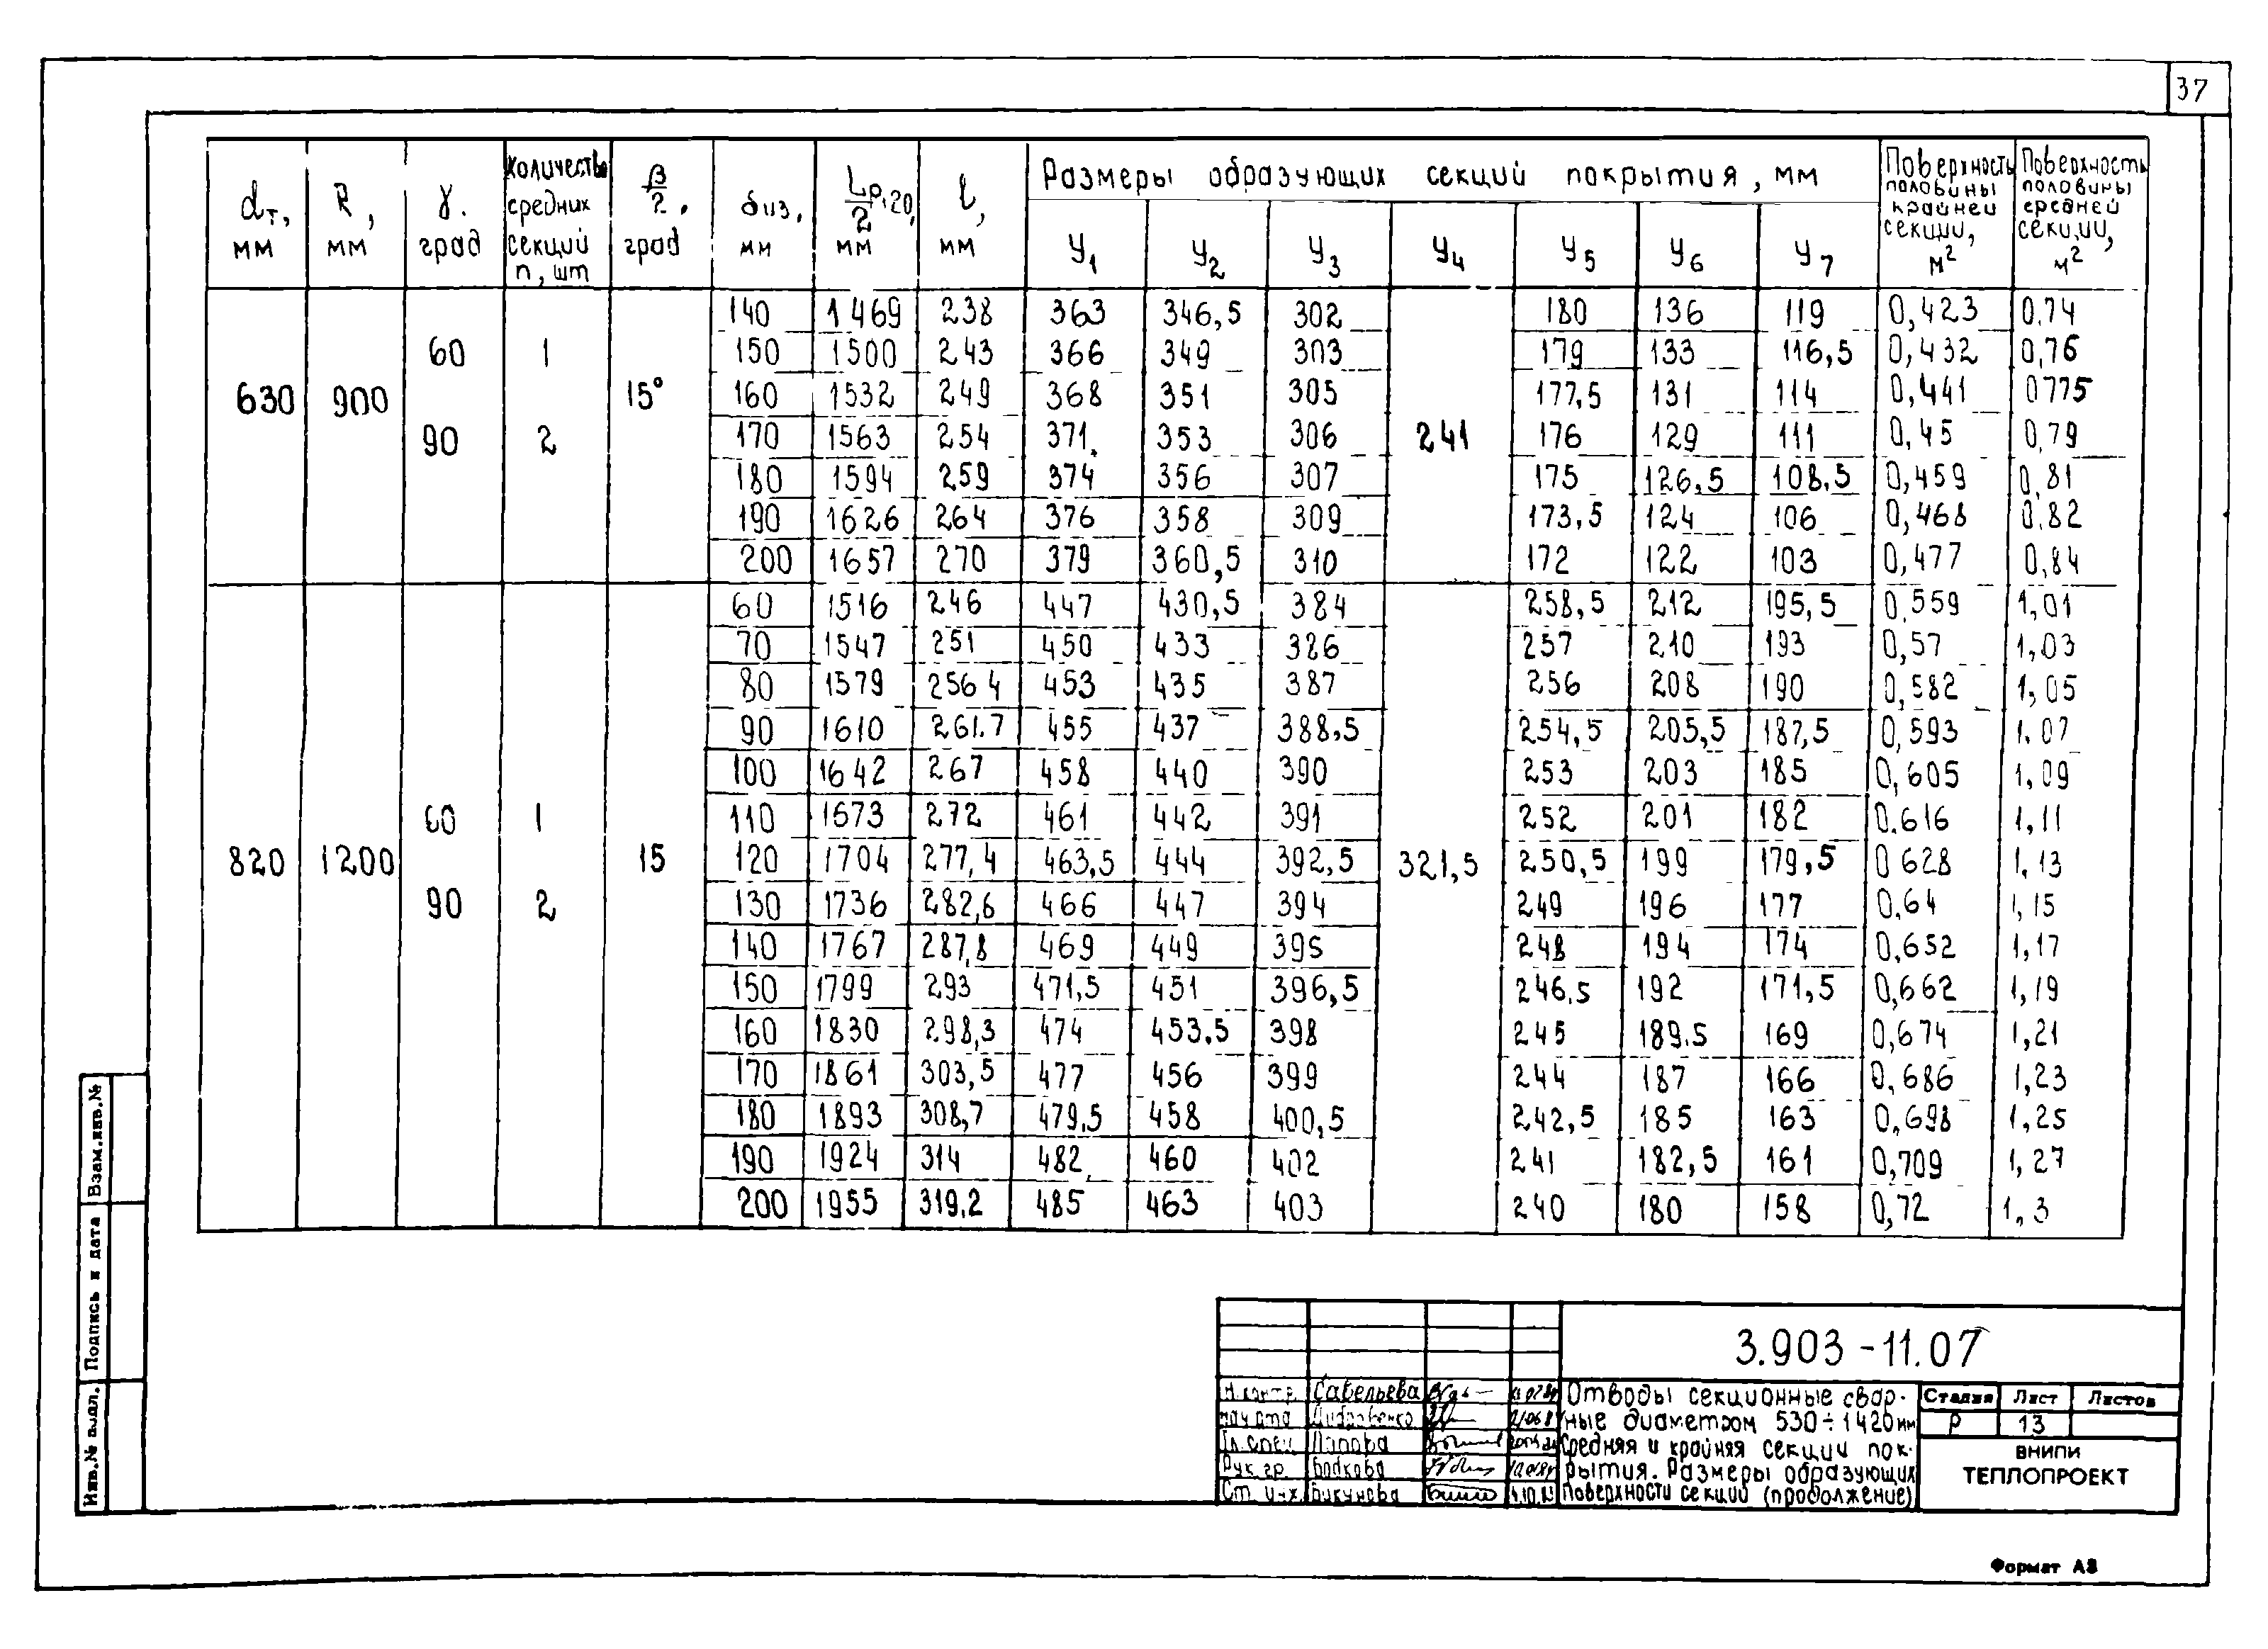 37
dт, мм R, мм γ. град Количество средних секций n, шт β/2, град δиз, мм Lр,20/2, мм l, мм Размеры образующих секций покрытия, мм Поверхность половины крайней секции, м² Поверхность половины средней секции, м²
У1 У2 У3 У4 У5 У6 У7
630 900 15° 241
60 1
90 2
140 1469 238 363 346,5 302 180 136 119 0,423 0.74
150 1500 243 366 349 303 179 133 116,5 0,432 0,76
160 1532 249 368 351 305 177,5 131 114 0,441 0775
170 1563 254 371 353 306 176 129 111 0,45 0,79
180 1594 259 374 356 307 175 126,5 108,5 0,459 0,81
190 1626 264 376 358 309 173,5 124 106 0,468 0.82
200 1657 270 379 360,5 310 172 122 103 0,477 0,84
820 1200 15 321,5
60 1
90 2
60 1516 246 447 430,5 384 258,5 212 195,5 0,559 1,01
70 1547 251 450 433 386 257 210 193 0,57 1,03
80 1579 256 4 453 435 387 256 208 190 0,582 1,05
90 1610 261.7 455 437 388,5 254,5 205,5 187,5 0,593 1.07
100 1642 267 458 440 390 253 203 185 0,605 1,09
110 1673 272 461 442 391 252 201 182 0.616 1,11
120 1704 277,4 463,5 444 392,5 250,5 199 179,5 0 628 1,13
130 1736 282,6 466 447 394 249 196 177 0,64 1,15
140 1767 287,8 469 449 395 248 194 174 0,652 1,17
150 1799 293 471,5 451 396,5 246,5 192 171,5 0,662 1,19
160 1830 298,3 474 453.5 398 245 189.5 169 0,674 1,21
170 1861 303,5 477 456 399 244 187 166 0,686 1,23
180 1893 308,7 479,5 458 400,5 242,5 185 163 0,698 1,25
190 1924 314 482 460 402 241 182,5 161 0,709 1,27
200 1955 319,2 485 463 403 240 180 158 0,72 1,3
Взам.инв.№
Подпись и дата
Инв.№ подл.
3.903-11.07
Н.контр. Савельева
нач отд
Гл.спец. Попова
Рук.гр.
Ст. инж.
Отводы секционные свар-
ные диаметром 530÷1420 мм
Средняя и крайняя секции пок-
рытия. Размеры образующих
Поверхности секций (продолжение)
Стадия Лист Листов
Р 13
ВНИПИ
ТЕПЛОПРОЕКТ
Формат А3